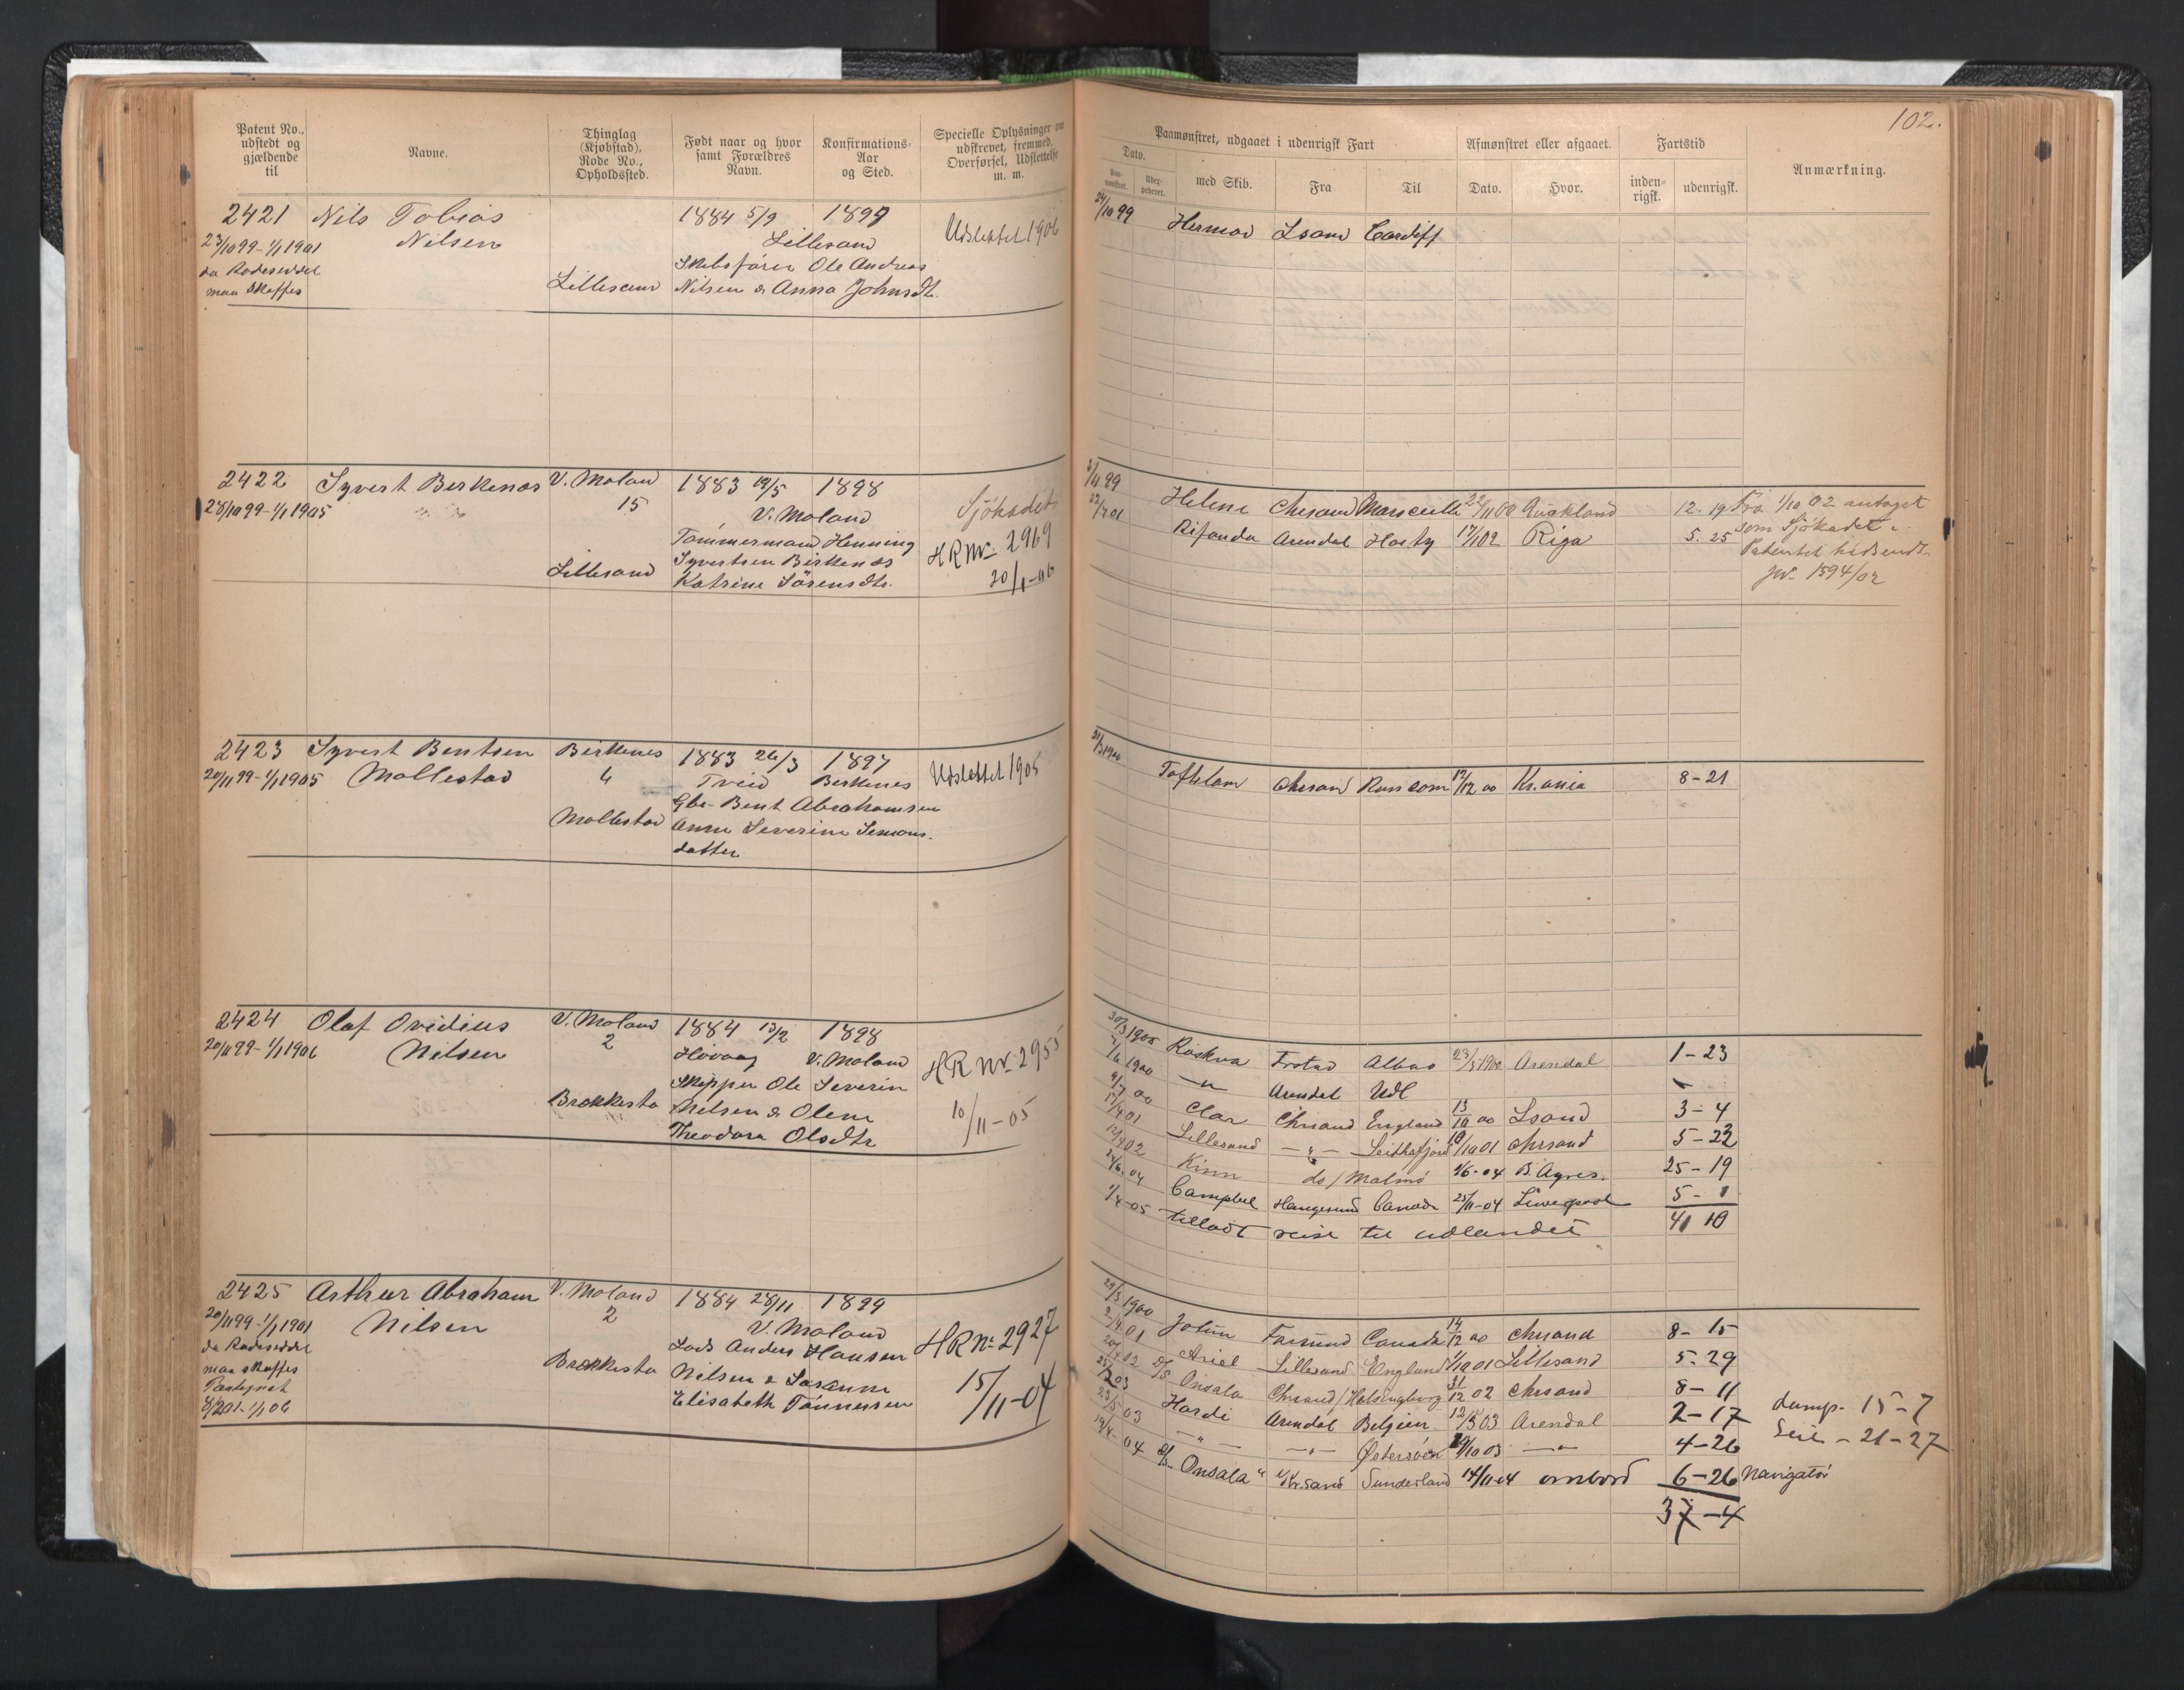 102.
Patent No., udstedt og gjældende til
Navne.
Thinglag (Kjøbstad), Rode No., Opholdssted.
Født naar og hvor samt Forældres Navn.
Konfirmations-Aar og Sted.
Specielle Oplysninger om udskrevet, fremmed, Overførsel, Udslettelse m. m.
Paamønstret, udgaaet i udenrigsk Fart
Afmønstret eller afgaaet.
Fartstid
Anmærkning.
Dato.
med Skib.
Fra
Til
Dato.
Hvor.
inden-rigsk.
udenrigsk.
2421 Nils Tobias 1884 5/9 1899 Udslettet 1906
23/10 99-1/1 1901 Nilsen Lillesand
da Rodeseddel Skibsfører Ole Andreas
maa skaffes Lillesand Nilsen & Anna Johnsdtr.
24/10 99 Hermod Lsand Cardiff
2422 Syvert Berkenes V. Moland 1883 19/5 1898 Sjökadet
28/10 99-1/1 1905 15 V. Moland
Tömmermand Henning HR No 2969
Lillesand Syvertsen Birkenes 20/1-06
Katrine Sörensdtr.
3/11 99 Helene Chrsand Marseille 22/11 00 Auckland 12-19 Fra 1/10 02 antaget
22/7 01 Rifonda Arendal Harty 17/1 02 Riga 5.25 som Sjökadet
Patentet hidsendt
jvr. 1594/02
2423 Syvert Bentsen Birkenes 1883 26/3 1897 Udslettet 1905
20/11 99-1/1 1905 Mollestad 4 Tveid Berkenes
Gbr. Bent Abrahamsen
Mollestad Anne Severine Simons-
datter
Toftelam Chrsand Runcorn 17/12 00 Kr.ania 8-21
2424 Olaf Ovidius V. Moland 1884 13/2 1898 HR No 2955
20/11 99-1/1 1906 Nilsen 2 Hövaag V. Moland
Skipper Ole Severin
Brækkestø Nilsen & Olene 10/11-05
Theodora Olsdtr
Röskva Arendal 1-23
1900 -"- Arendal Udl
00 Clar Chrsand England 13/10 00 Lsand 3-4
01 Lillesand -"- 19/10 01 Chrsand 5-22
02 Kinn do / Malmö 1/6-04 B. Ayres. 25-19
04 Campbel Haugesund Canada 25/11-04 Liverpool 5-1
1/4-05 tilladt reise til udlandet 41 10
2425 Arthur Abraham V. Moland 1884 28/11 1899 HR No 2927
20/11 99-1/1 1901 Nilsen 2 V. Moland
da Rodeseddel Lods Anders Hansen
maa skaffes Brækkestø Nilsen & 15/11-04
Elisabeth Tönnesen
29/3 1900 Jotun Farsund Canada 14/12 00 Chrsand 8-15
01 Ariel Lillesand England 1/10 01 Lillesand 5-29
02 D/S Onsala Chrsand/Helsingborg 31/12 02 Chrsand 8-11
03 Hardi Arendal Belgien 12/5 03 Arendal 2-17 damp- 15-7
23/5 03 -"- -"- Östersöen 29/10 03 -"- 4-26 Seil - 21-27
19/4-04 D/S Onsala" Kr.sand Sunderland 14/11 04 ombord 6-26 Navigatör
37-4